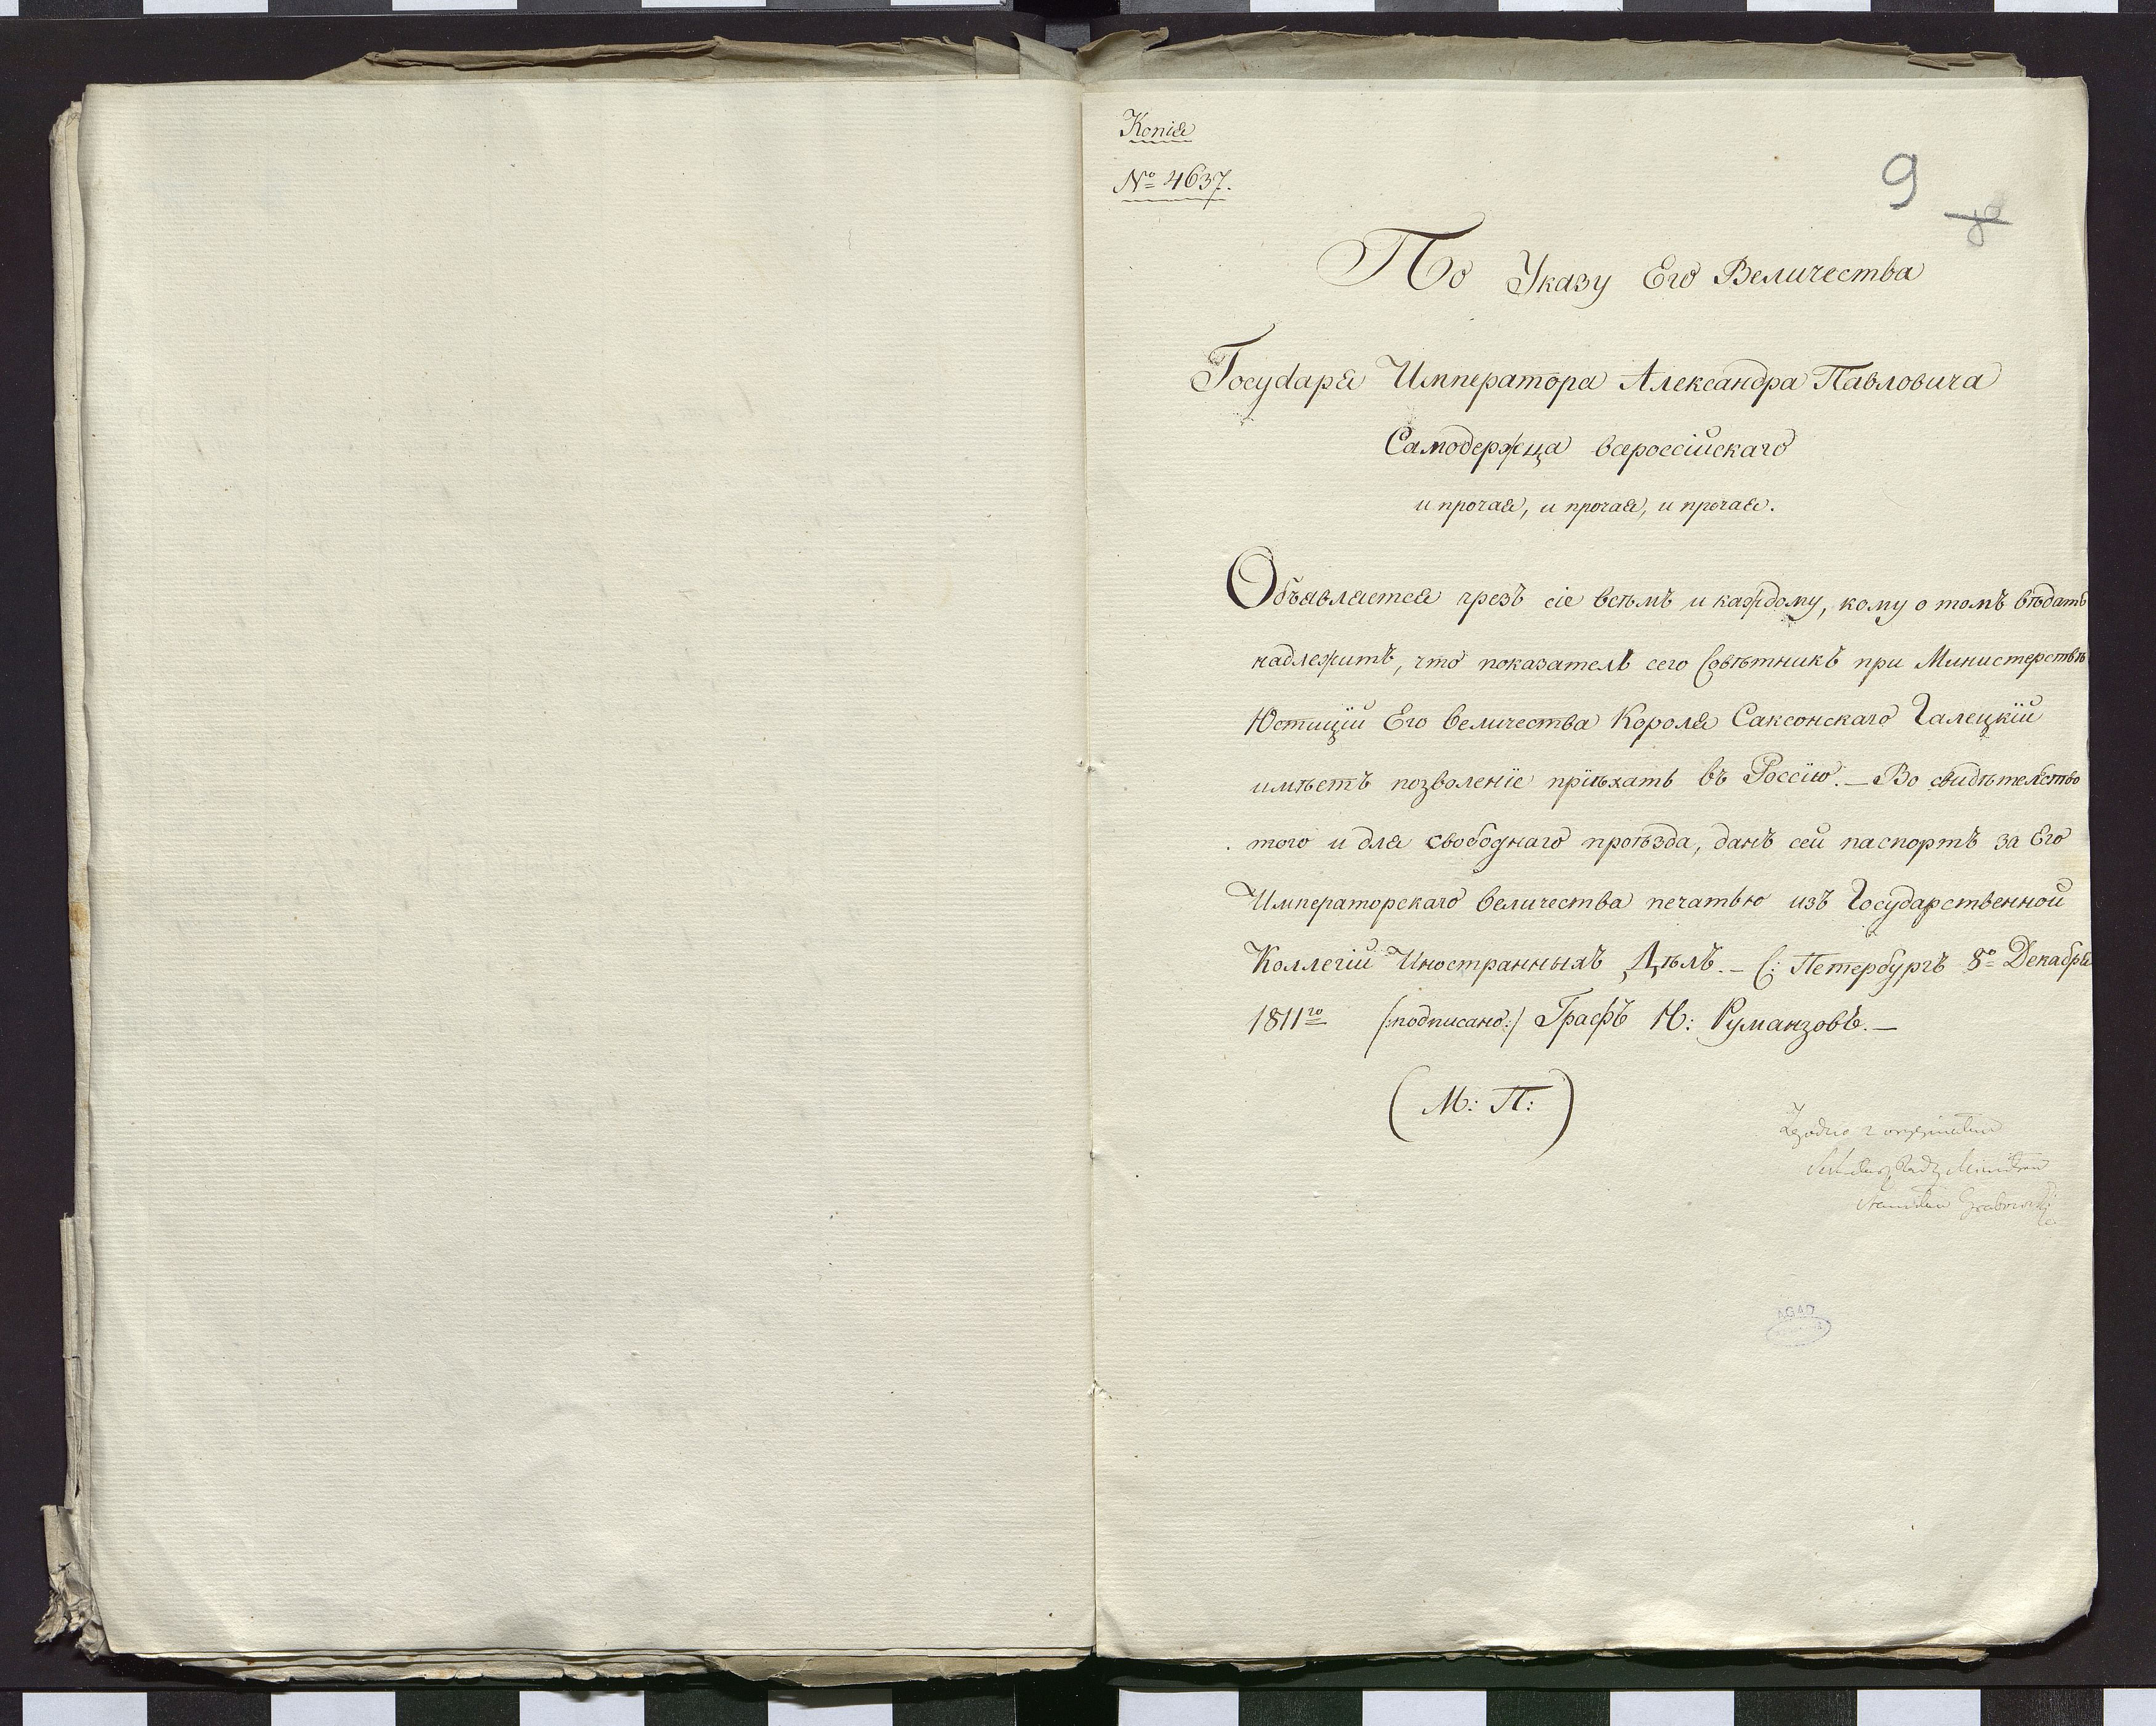 Копія
№ 4637.
9
По Указу Его Величества
Государя Императора Александра Павловича
Самодержца всероссійскаго
и прочая, и прочая, и прочая.
Объявляется чрезъ сіе всѣмъ и каждому, кому о томъ вѣдать
надлежитъ, что показатель сего Совѣтникъ при Министерствѣ
Юстиціи Его величества Короля Саксонскаго Галецкій
имѣетъ позволеніе пріѣхать въ Россію. — Во свидѣтельство
того и для свободнаго проѣзда, данъ сей паспортъ за Его
Императорскаго величества печатью изъ Государственной
Коллегіи Иностранныхъ Дѣлъ. — С: Петербургъ 8º Декабря
1811го /:подписано:/ Графъ Н: Руманзовъ. —
(М: П:)
Zgodno z oryginałem
Sekretarz Rady Ministrów
Stanisław Grabowski
AGAD